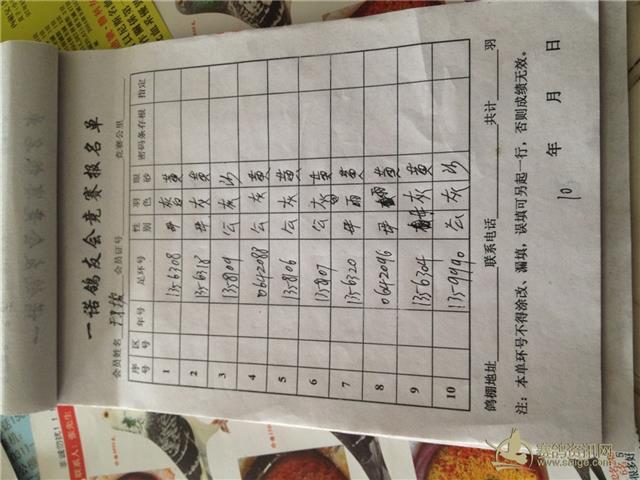 一诺鸽友会竞赛报名单
会员姓名 会员证号 竞赛公里
序号 区号 年号 足环号 性别 羽色 眼砂 密码条存根 指定
1 13-6308 黄
2 13-6318 灰 黄
3 13-8109 公 灰 沙
4 0642088 公 灰 黄
5 13-8106 公 灰 黄
6 13-8107 公 灰 黄
7 13-6320 雨 黄
8 0642096 黄
9 13-6304 灰 黄
10 13-9990 公 灰 沙
鸽棚地址 联系电话 共计 羽
注：本单环号不得涂改、漏填，误填可另起一行，否则成绩无效。
10 年 月 日
赛鸽资讯网
www.saige.com
联系人：张先生